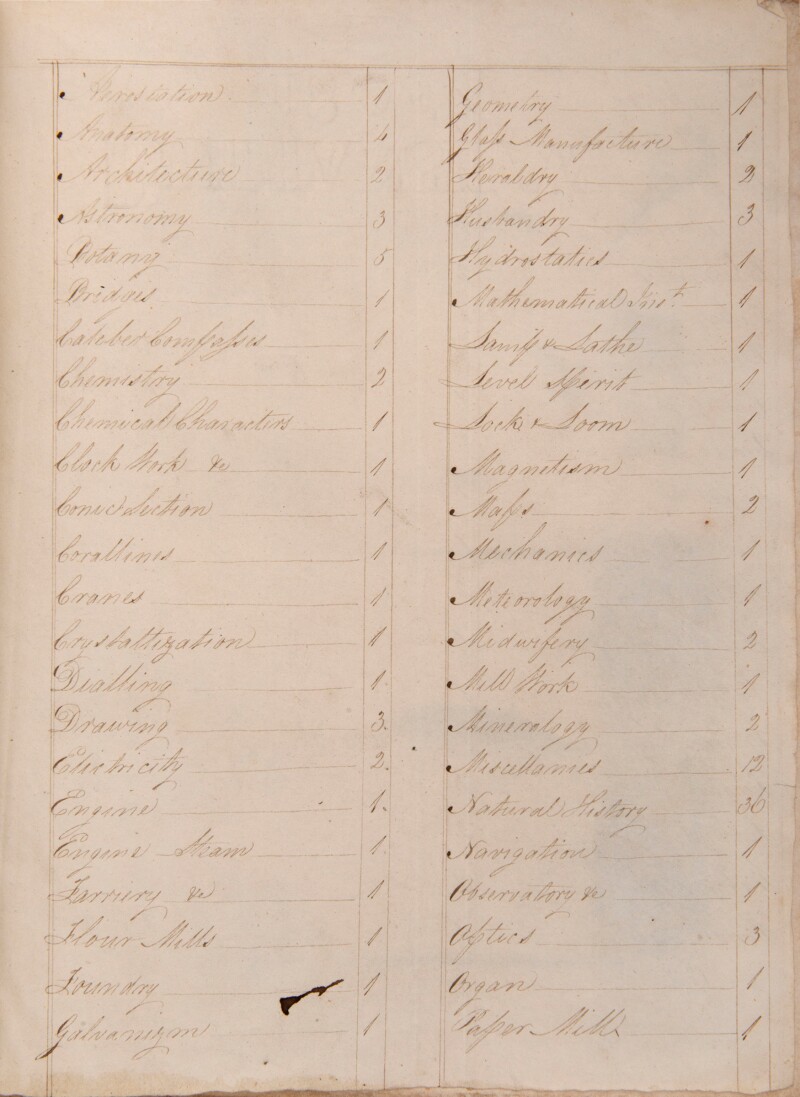 Aerostation 1
Anatomy 4
Architecture 2
Astronomy 3
Botany 5
Bridges 1
Caleber Compasses 1
Chemistry 2
Chemical Characters 1
Clock Work &c 1
Conic Section 1
Corallines 1
Cranes 1
Crystallization 1
Dialling 1.
Drawing 3.
Electricity 2.
Engine 1.
Engine Steam 1
Farriery &c 1
Flour Mills 1
Foundry 1
Galvanizm 1
Geometry 1
Glass Manufacture 1
Heraldry 2
Husbandry 3
Hydrostatics 1
Mathematical Inst. 1
Lamp & Lathe 1
Level Spirit 1
Lock & Loom 1
Magnetism 1
Maps 2
Mechanics 1
Meteorology 1
Midwifery 2
Mill Work 1
Minerology 2
Miscellanies 12
Natural History 36
Navigation 1
Observatory &c 1
Optics 3
Organ 1
Paper Mill 1